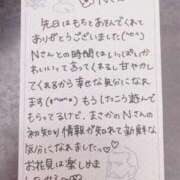 Nさん
先日はもちとあそんでくれて
ありがとうございました(^o^)
Nさんとの時間はいっぱいか
わいいってあってくれるし甘やかし
てくれるから幸せな気分になれ
ます もう1たこう遊んで
もらってるけど、まさかのNさんの
初知り情報が知れて新鮮な
気分になれました。
お花見は楽しめま
したか??